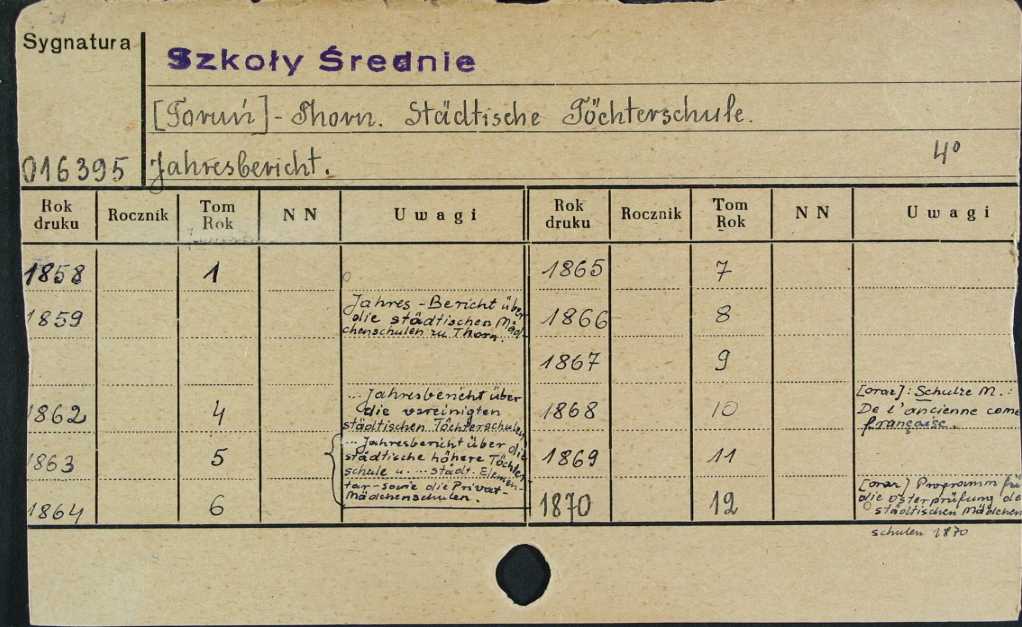 Sygnatura
Szkoły Średnie
[Toruń] - Thorn. Städtische Töchterschule.
016395 Jahresbericht. 4°
Rok druku Rocznik Tom Rok NN Uwagi Rok druku Rocznik Tom Rok NN Uwagi
1858 1
1859 Jahres-Bericht über
die städtischen Mäd-
chenschulen zu Thorn.
1862 4 ... Jahresbericht über
die vereinigten
städtischen Töchterschulen
1863 5 ... Jahresbericht über die
städtische höhere Töchter-
schule u. ... städt. Elemen-
tar-sowie die Privat-
Mädchenschulen.
1864 6
1865 7
1866 8
1867 9
1868 10 [oraz]: Schulze M.:
De l'ancienne come
française.
1869 11
1870 12 [oraz] Programm für
die Osterprüfung de
städtischen Mädchen
schulen 1870